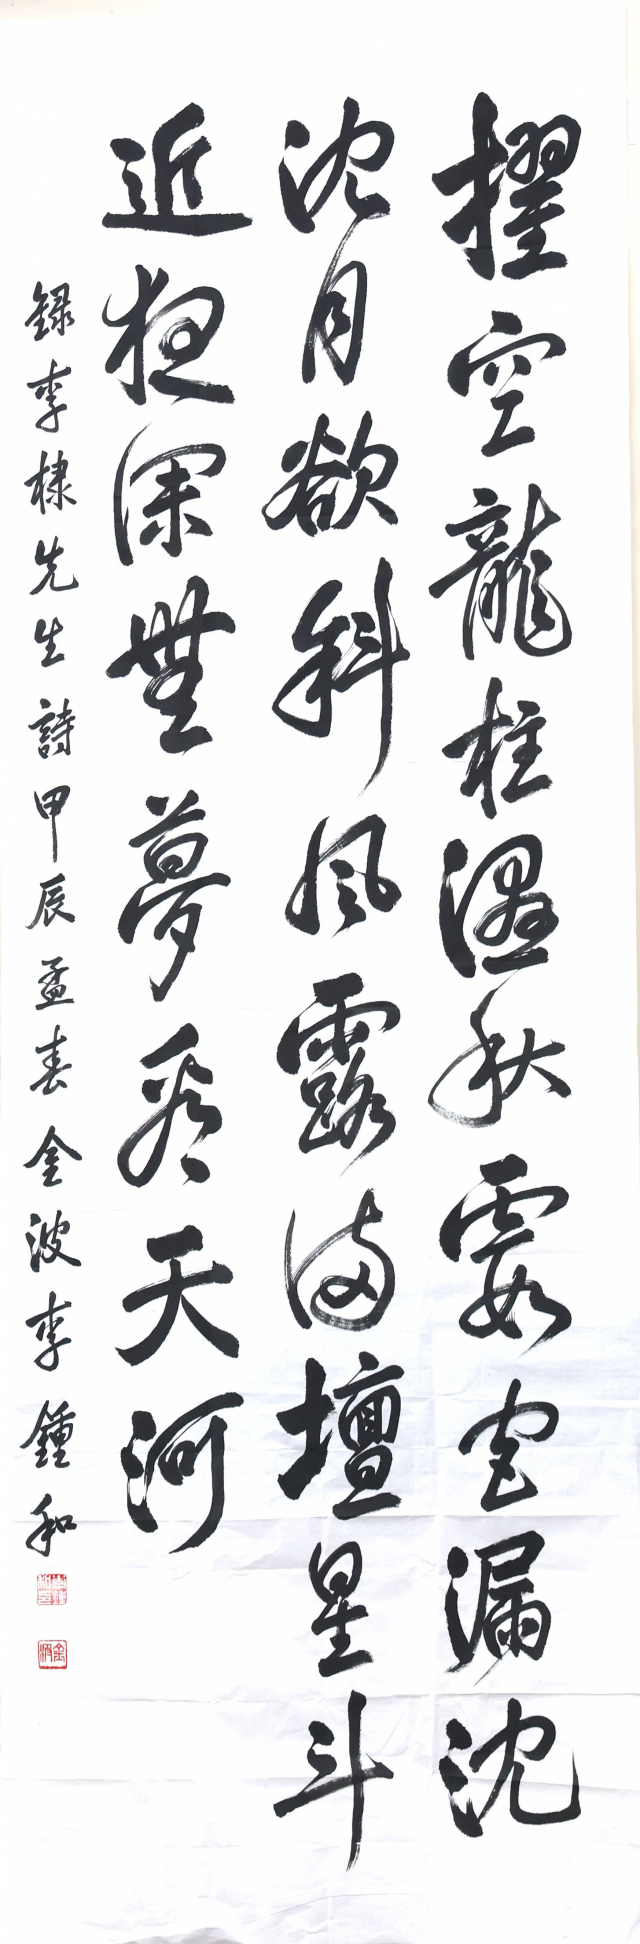 擢空龍柱濕秋霞宮漏沈
沈月欲斜風露滿壇星斗
近夜深無夢看天河
録李棣先生詩甲辰孟春金波李鍾和